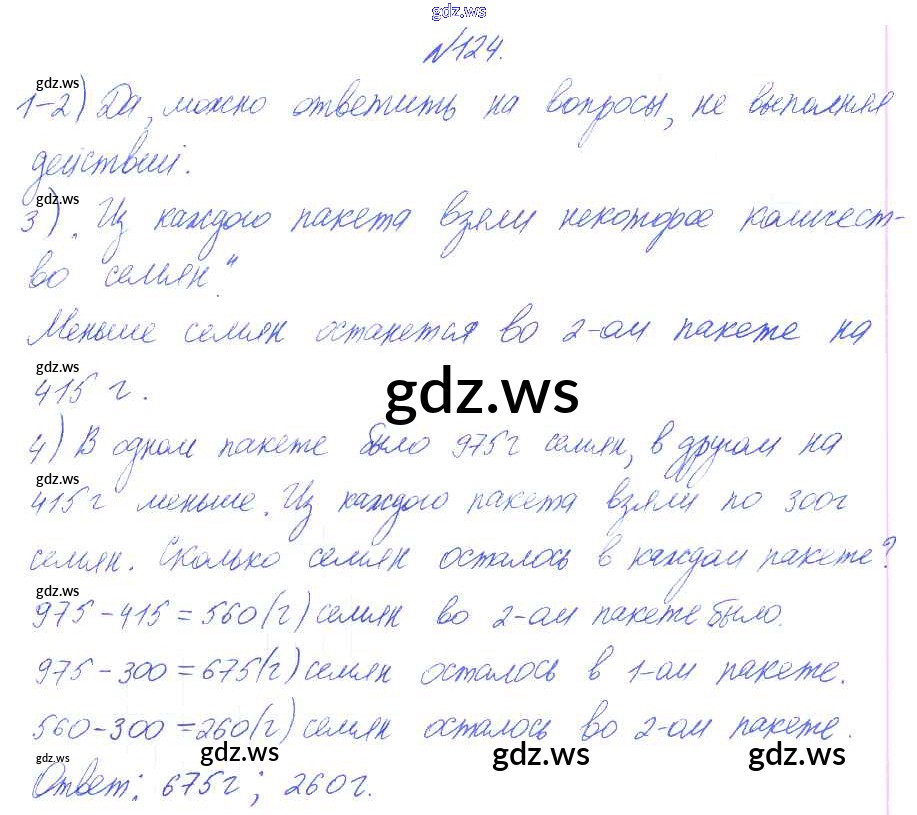 gdz.ws
№124.
gdz.ws
1-2) Да, можно ответить на вопросы, не выполняя
действий.
gdz.ws
3) „Из каждого пакета взяли некоторое количест-
во семян."
Меньше семян останется во 2-ом пакете на
gdz.ws
415 г.
gdz.ws
4) В одном пакете было 975г семян, в другом на
gdz.ws
415г меньше. Из каждого пакета взяли по 300г
семян. Сколько семян осталось в каждом пакете?
gdz.ws
975-415=560(г) семян во 2-ом пакете было.
975-300=675(г) семян осталось в 1-ом пакете.
560-300=260(г) семян осталось во 2-ом пакете.
gdz.ws gdz.ws gdz.ws gdz.ws
Ответ: 675г; 260г.